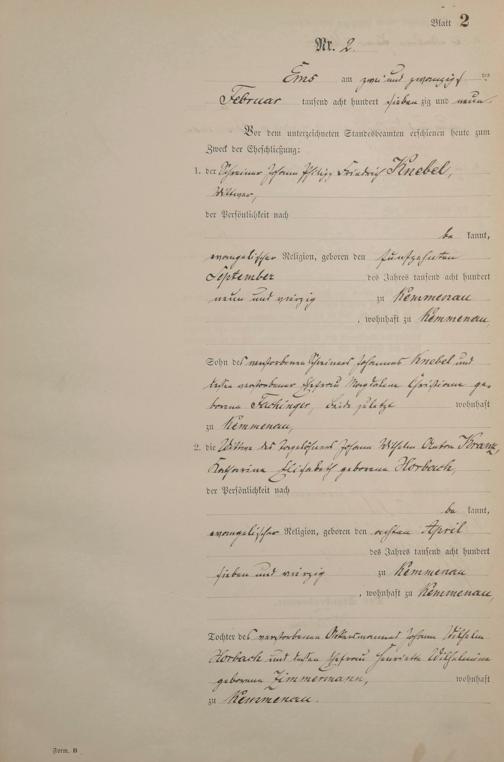 Blatt 2
Nr. 2.
Ems am zwei und zwanzigsten
Februar tausend acht hundert siebenzig und neun
Vor dem unterzeichneten Standesbeamten erschienen heute zum
Zweck der Eheschließung:
1. der Schreiner Johann Philipp Friedrich Knebel,
Wittwer,
der Persönlichkeit nach
be kannt,
evangelischer Religion, geboren den fünfzehnten
September des Jahres tausend acht hundert
neun und vierzig zu Kemmenau
, wohnhaft zu Kemmenau
Sohn des verstorbenen Schreiners Johannes Knebel und
dessen verstorbener Ehefrau Magdalene Christiane ge-
borene Fachinger, beide zuletzt wohnhaft
zu Kemmenau,
2. die Wittwe des Johann Wilhelm Anton Kranz,
Katharina Elisabeth geborene Horbach,
der Persönlichkeit nach
be kannt,
evangelischer Religion, geboren den achten April
des Jahres tausend acht hundert
sieben und vierzig zu Kemmenau
, wohnhaft zu Kemmenau,
Tochter des verstorbenen Ackersmannes Johann Wilhelm
Horbach und dessen Ehefrau Henriette Wilhelmine
geborene Zimmermann, wohnhaft
zu Kemmenau.
Form. B